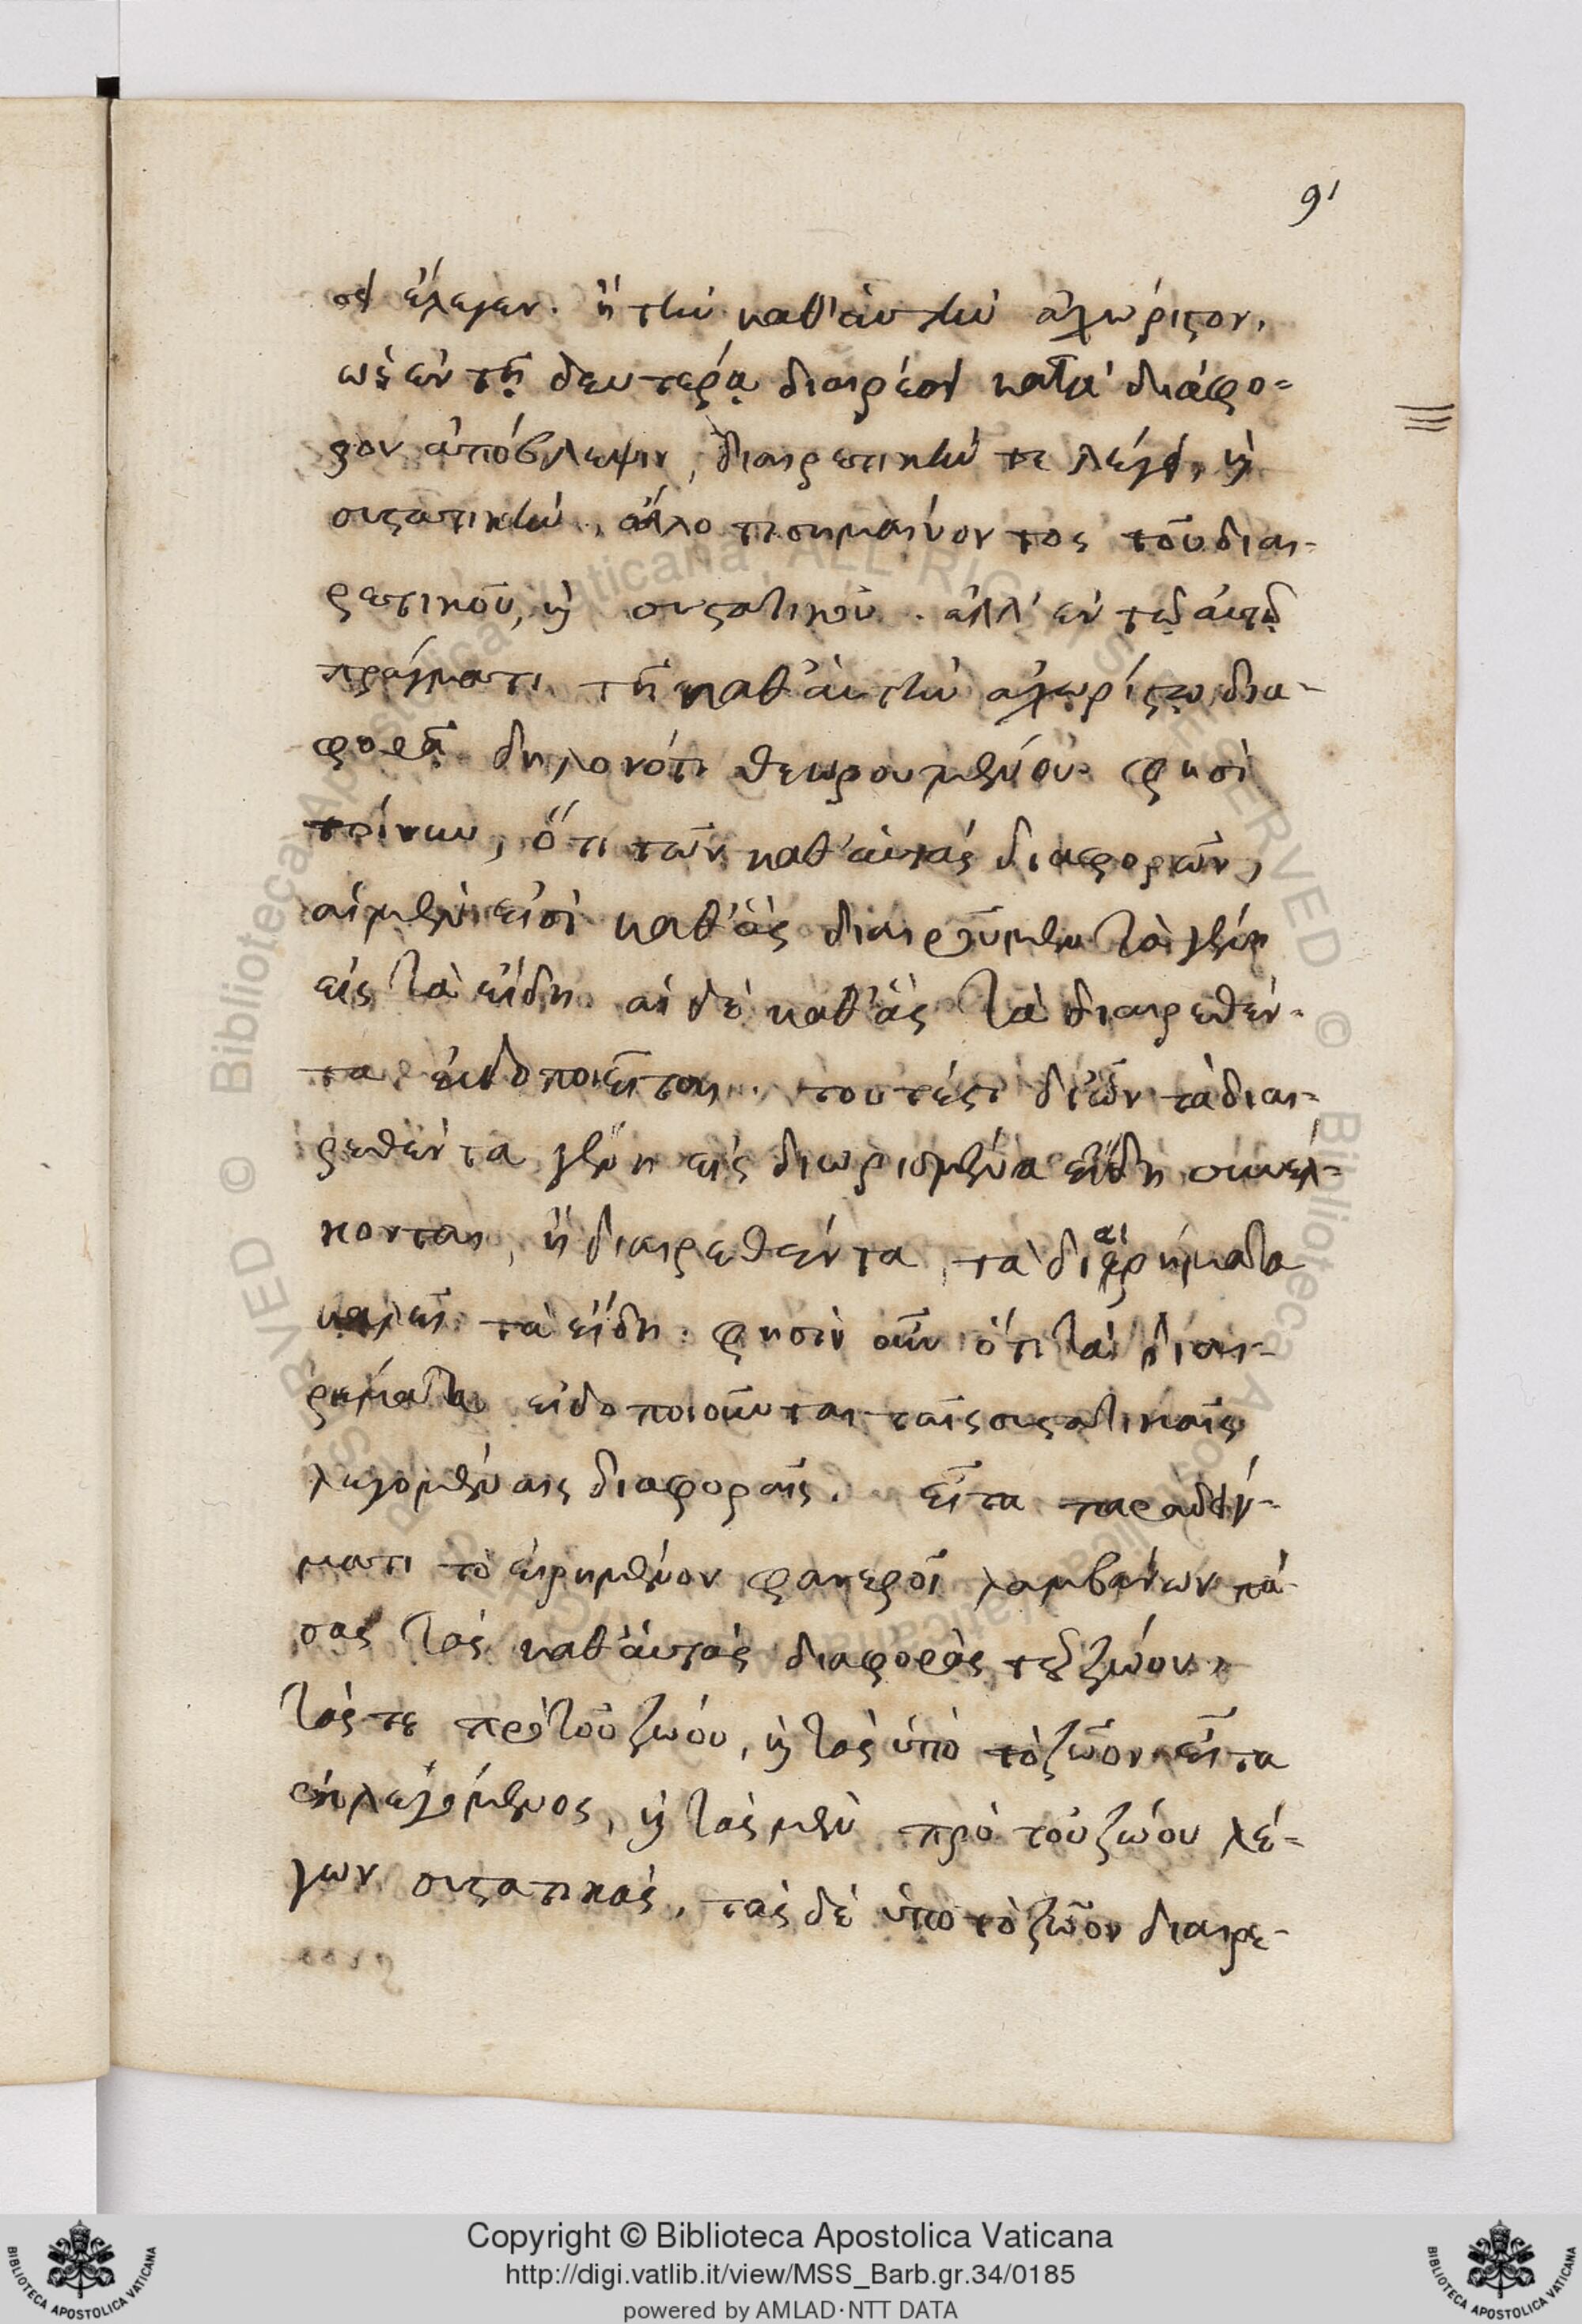 91
σει ἔλεγεν. ἢ τὴν καθ' αὑτὴν ἀχώριστον,
ὡς ἐν τῇ δευτέρᾳ διαιρέσει κατὰ διάφο-
ρον ἀπόβλεψιν, διαιρετικήν τε λέγει, καὶ
συστατικήν, ἄλλο τι σημαίνοντος τοῦ διαι-
ρετικοῦ, καὶ συστατικοῦ. ἀλλ' ἐν τῷ αὐτῷ
πράγματι τῇ καθ' αὑτὴν ἀχωρίστῳ δια-
φορᾷ δηλονότι θεωρουμένου. φησὶ
τοίνυν, ὅτι τῶν καθ' αὑτὰς διαφορῶν,
αἱ μὲν εἰσὶ καθ' ἃς διαιροῦμεν τὰ γένη
εἰς τὰ εἴδη. αἱ δὲ καθ' ἃς τὰ διαιρεθέν-
τα εἰδοποιεῖται. τουτέστι δι' ὧν τὰ διαι-
ρεθέντα γένη εἰς διωρισμένα εἴδη συνέλ-
κονται, ἢ διαιρεθέντα τὰ διαιρήματα
καλεῖ τὰ εἴδη. φησὶν οὖν ὅτι τὰ διαι-
ρήματα εἰδοποιοῦνται ταῖς συστατικαῖς
λεγομέναις διαφοραῖς. εἶτα παραδείγ-
ματι τὸ εἰρημένον φανεροῖ λαμβάνων πά-
σας τὰς καθ' αὑτὰς διαφορὰς τοῦ ζώου,
τάς τε πρὸ τοῦ ζώου, καὶ τὰς ὑπὸ τὸ ζῶον. εἶτα
ἐκλεγόμενος, καὶ τὰς μὲν πρὸ τοῦ ζώου λέ-
γων συστατικάς, τὰς δὲ ὑπὸ τὸ ζῶον διαιρε-
© Biblioteca Apostolica Vaticana, ALL RIGHTS RESERVED
Copyright © Biblioteca Apostolica Vaticana
http://digi.vatlib.it/view/MSS_Barb.gr.34/0185
powered by AMLAD·NTT DATA
BIBLIOTECA APOSTOLICA VATICANA
BIBLIOTECA APOSTOLICA VATICANA